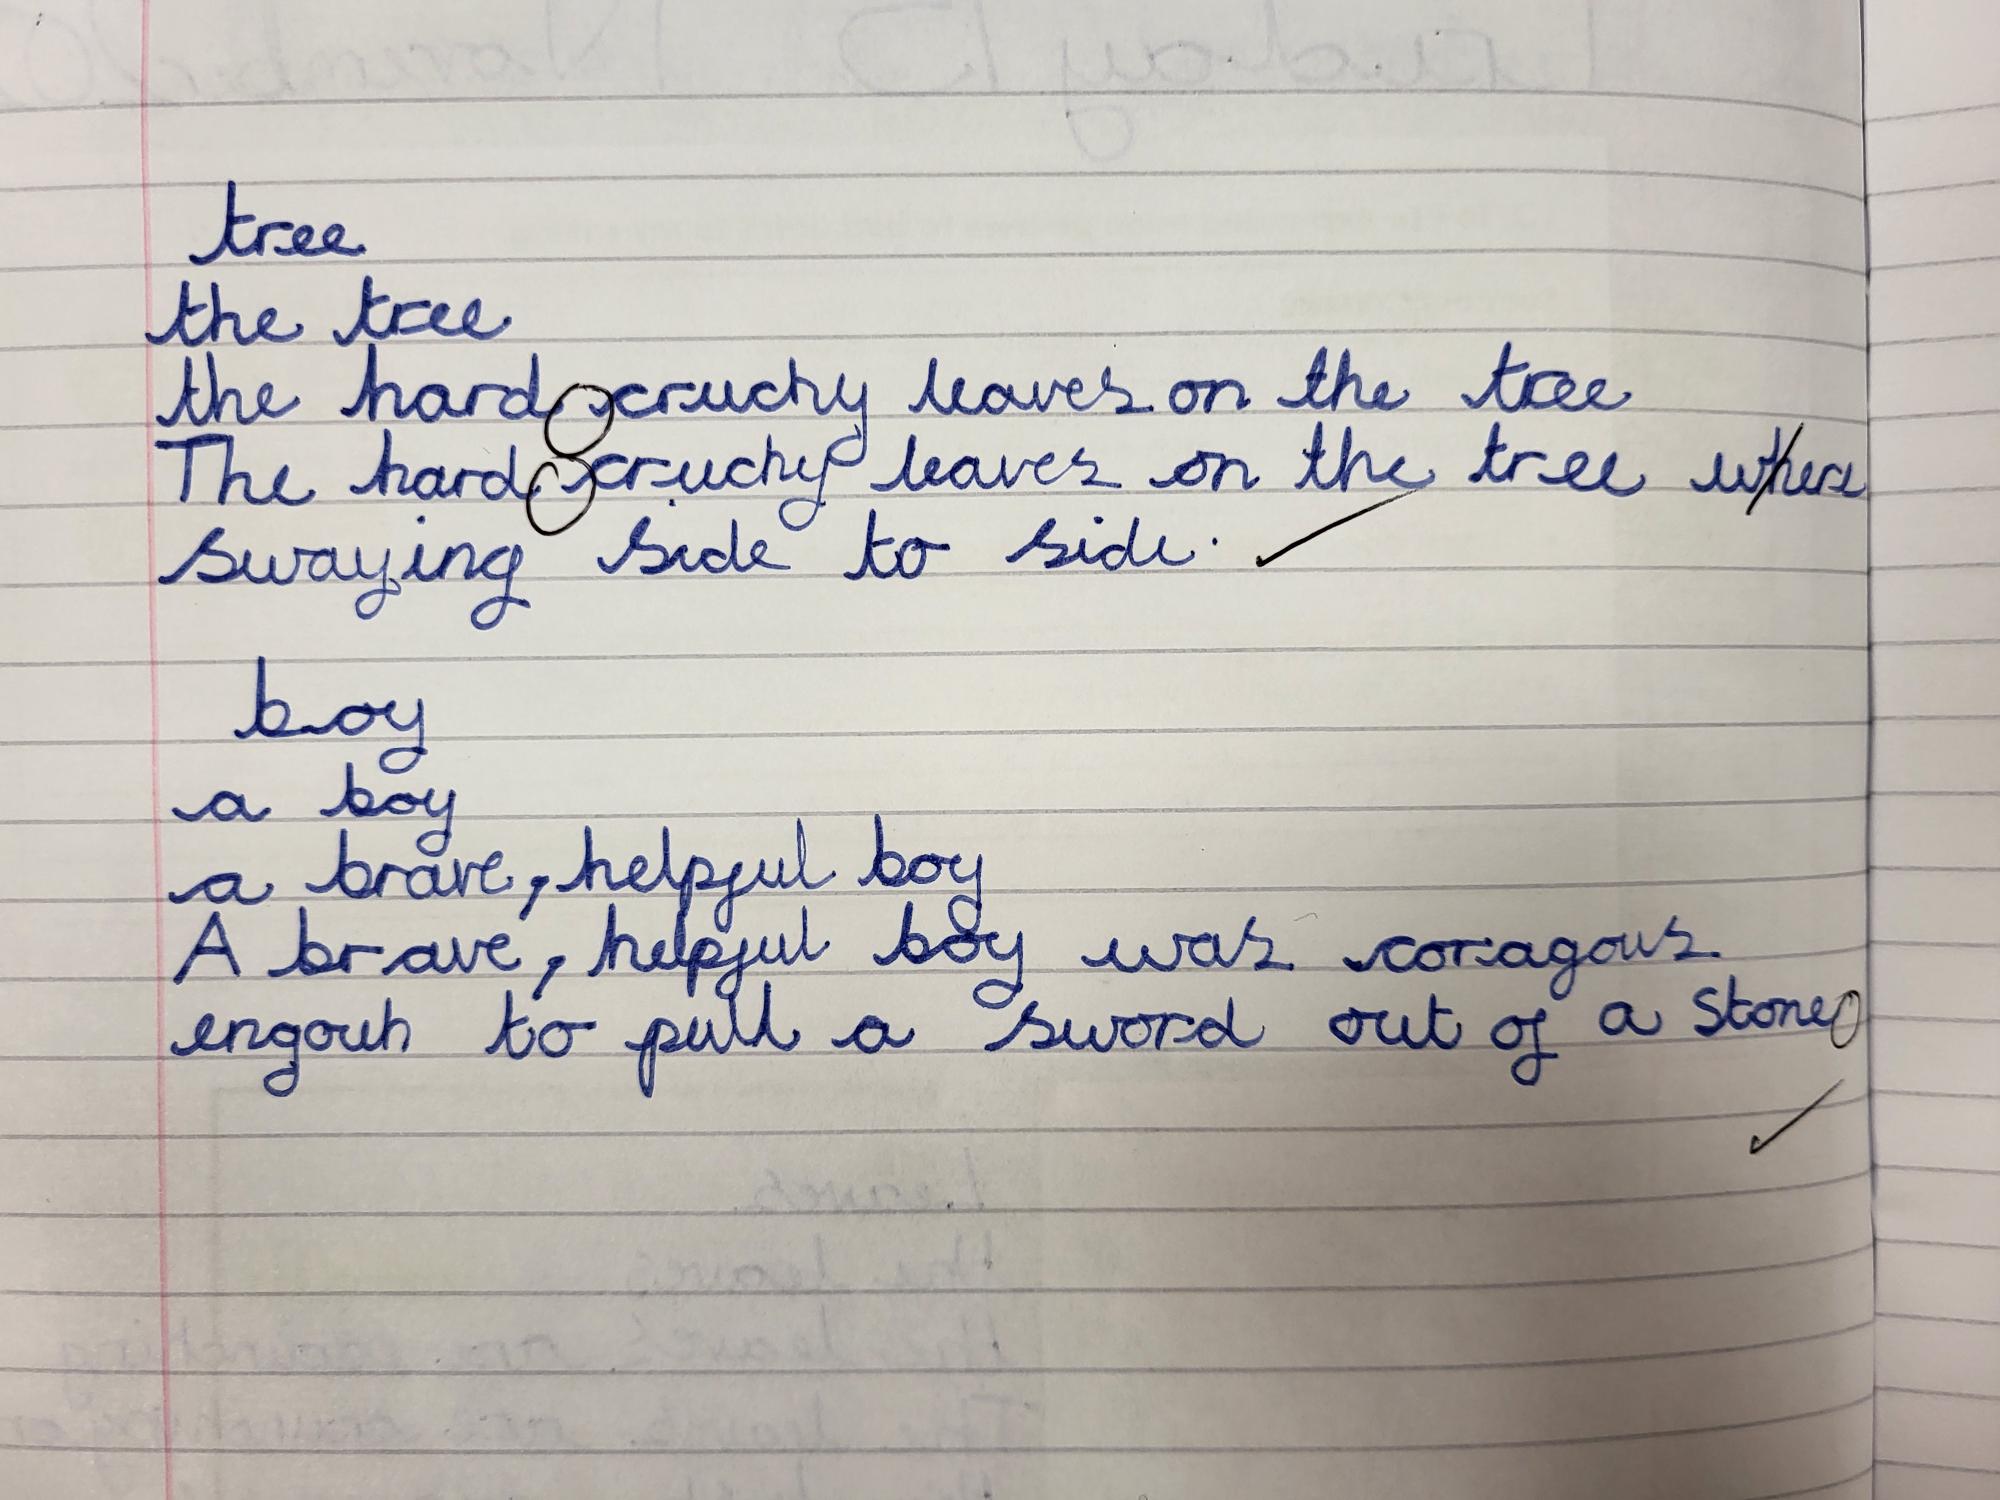 tree
the tree
the hard cruchy leaves on the tree
The hard cruchy leaves on the tree where
swaying side to side.
boy
a boy
a brave, helpful boy
A brave, helpful boy was coragous
engouh to pull a sword out of a stone